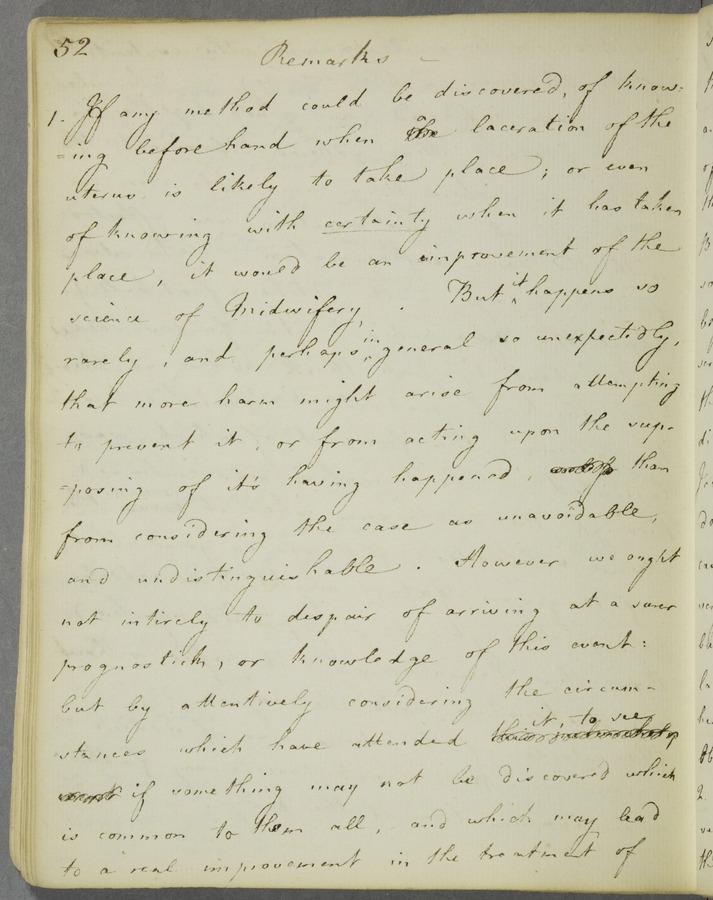 52
Remarks –
1. If any method could be discovered, of know:
=ing before hand when a laceration of the
uterus is likely to take place; or even
of knowing with certainty when it has taken
place, it would be an improvement of the
science of Midwifery. But it happens so
rarely, and perhaps in general so unexpectedly,
that more harm might arise from attempting
to prevent it, or from acting upon the sup-
=posing of it's having happened, than
from considering the case as unavoidable,
and undistinguishable. However we ought
not intirely to despair of arriving at a surer
prognostick, or knowledge of this event:
but by attentively considering the circum-
stances which have attended it, to see
if something may not be discovered which
is common to them all, and which may lead
to a real improvement in the treatment of